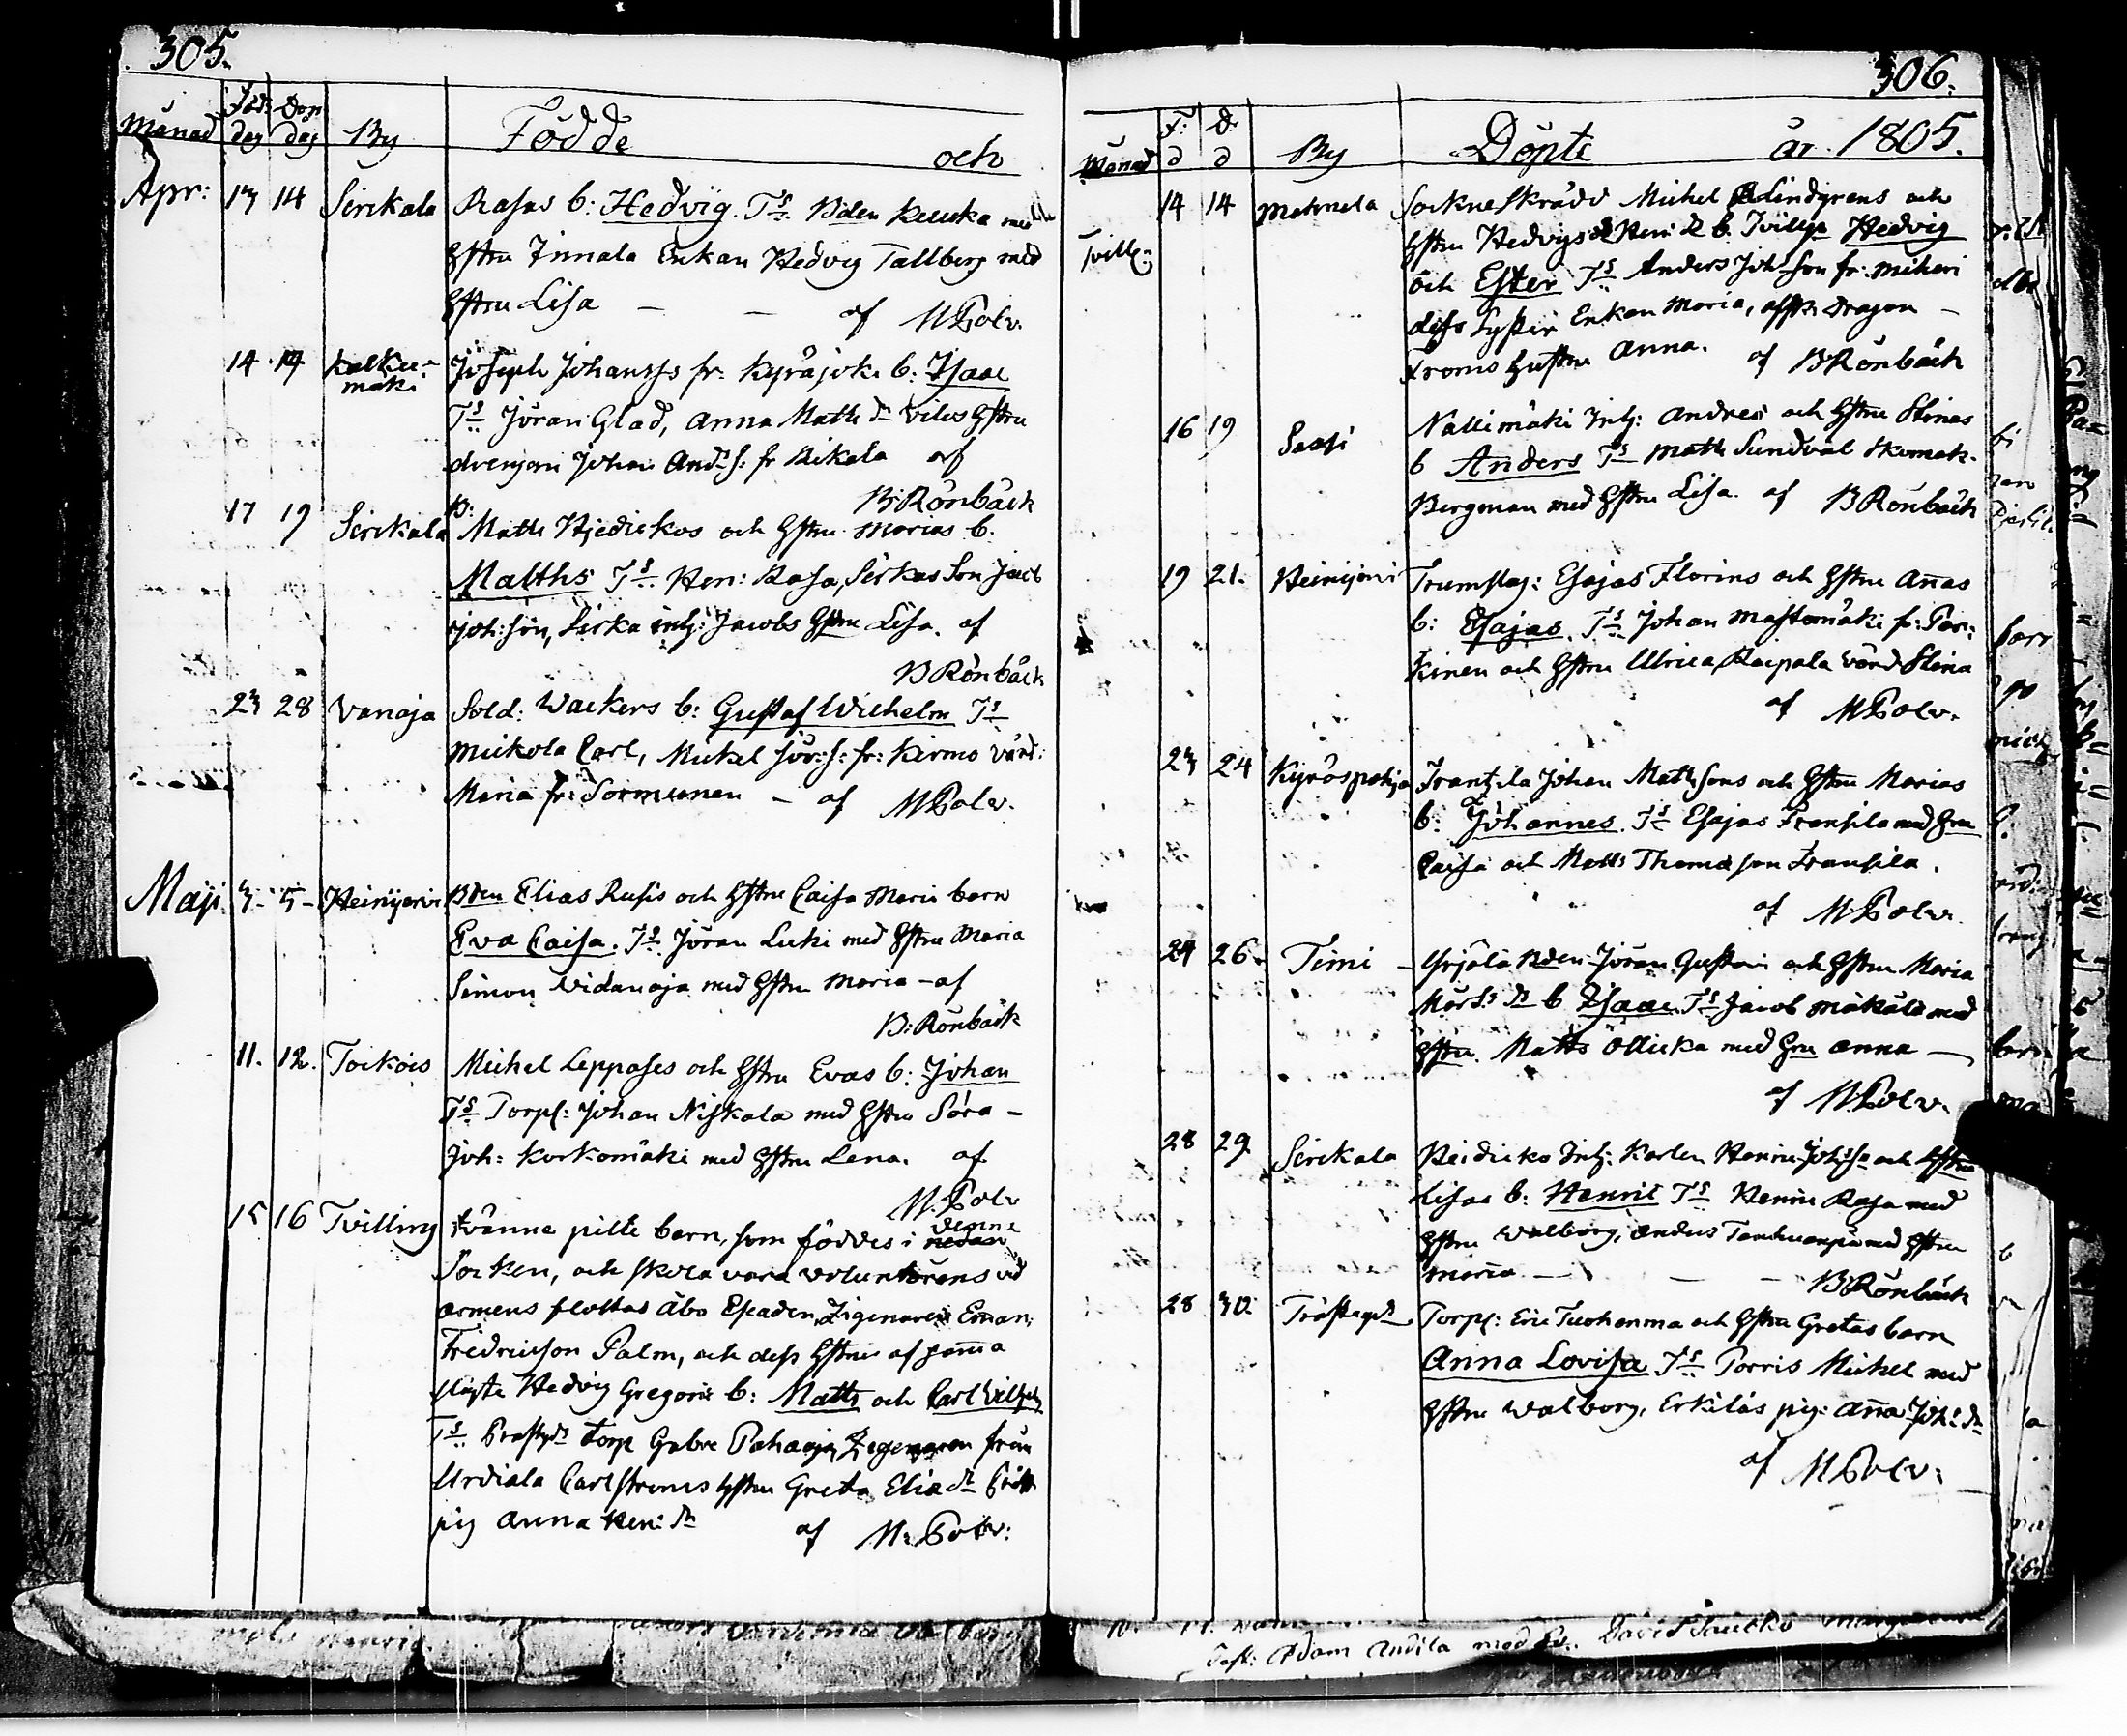 305.
Månad Föd: dag Dop dag By Födde och
Apr: 13 14 Sirckala Rasas b: Hedvig. Ts. Bden med
hstru Innala Enkan Hedvig Tallberg med
hstru Lisa — — af M Polv.
14 14 Kalku-
mäki
Joseph Johanss fr: Kyröjoki b: Isaac
Ts Jöran Glad, Anna Matts dr hstru
drengen Johan And: s: fr Kikala af
B: Rönbäck
17 19 Sirckala B: Matts Hjedickos och hstru Marias b.
Matths Ts. Hen: Rasa, Sirkas Son Jacob
Joh: son, Sirka inh: Jacobs hstru Lisa. af
B Rönbäck
23 28 Vanaja Sold: Wackers b: Gustaf Wilhelm Ts
Mickola Carl, Mickel Jör: s: fr: Kirmo värd:
Maria fr: Sormunen — af M Polv.
Maji 3- 5- Heinijervi Bden Elias Rusis och hstru Caisa Maris barn
Eva Caisa. Ts Jöran Luki med hstru Maria
Simon Vidanoja med hstru Maria — af
B: Rönbäck
11. 12. Tockois Michel Leppases och hstru Evas b: Johan
Ts Torp: Johan Niskala med hstru Sara —
Joh: Korkomäki med hstru Lena. af
M. Polv
15 16 Tvilling tvänne pilte barn, som föddes i denna
Socken, och skola vara voluntärens vid
armens flottas Åbo Escaden, Zigenaren Eman:
Fredricson Palm, och dess hstrus af samma
slägte Hedvig Gregoris b: Matts och Carl Vilhelm
Ts. Prästgds torp Gabr Pahaoja, Zigenaren från
Urdiala Carlströms hstru Greta Elia dr
pig Anna Hen: dr af M: Polv:
306.
Månad F: d D: d By Döpte år 1805.
Tvill:
14 14 Metmela Sockneskrädd Michel Lindgrens och
hstru Hedvigs Hen: dr b. Tvilling Hedvig
och Ester Ts Anders Joh: Son fr: Miheri
dess Syster Enkan Maria, Dragon —
Froms hustru Anna. af B Rönbäck
16 19 Sassi Nallimäki Inh: Andres och hstru Stinas
b Anders Ts Matts Sundvàl Skomak-
Bergman med hstru Lisa. af B Rönbäck
19 21. Heinijervi Trumslag: Esajas Florins och hstru Annas
b: Esajas. Ts Johan Mastomäki fr: Par:
kinen och hstru Ulrica, Raipala värd Stina
af M Polv.
23 24 Kyröspohja Frantzila Johan Mattssons och hstru Marias
b: Johannes. Ts Esajas Fransila med hru
Caisa och Matts Thomasson Fransila.
af M Polv.
24 26. Timi — Yrjölä Bden Jöran Gustavi och hstru Maria
Mårts dr b Isaac. Ts Jacob Mäkälä med
hstru. Matts Ollicka med hru Anna —
af M. Polv.
28 29 Sirckala Heidicko Inh: Karlen Henric Joh: Son och hstru
Lisas b: Henric Ts Henric Rasa med
hstru Walborg, Anders med hstru
Maria — — — B: Rönbäck
28 30 Torp: Eric Tuohenma och hstru Gretas barn
Anna Lovisa Ts Porris Michel med
hstru Walborg, Erkiläs pig: Anna Joh: dr
af M Polv:
Test: Adam Andila med